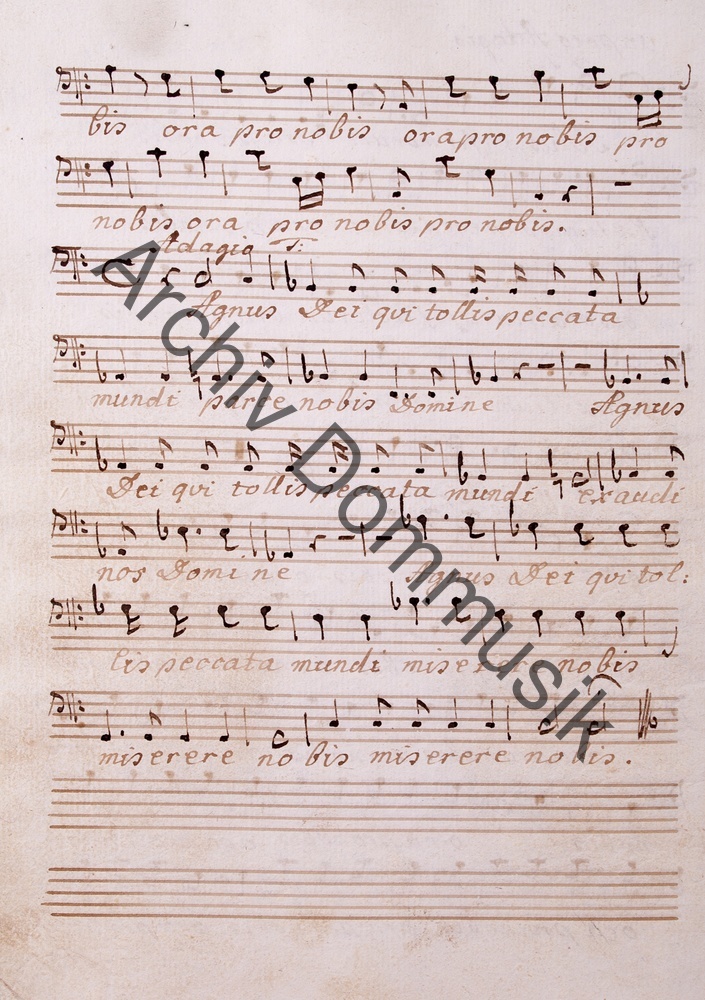 bis ora pro nobis ora pro nobis pro
nobis ora pro nobis pro nobis.
Adagio T:
Agnus Dei qui tollis peccata
mundi parce nobis Domine Agnus
Dei qui tollis peccata mundi exaudi
nos Domine Agnus Dei qui tol:
lis peccata mundi miserere nobis
miserere nobis miserere nobis.
Archiv Dommusik